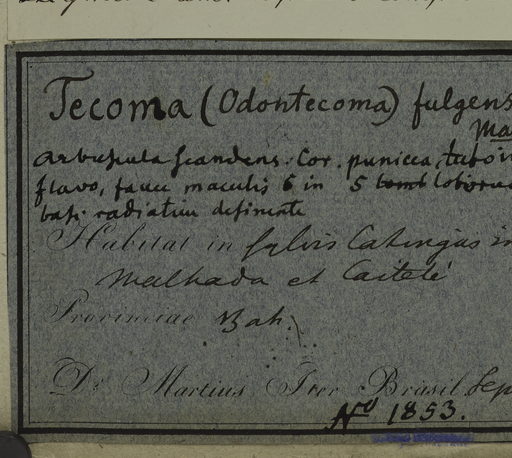 Tecoma (Odontecoma) fulgens
Ma
arbuscula scandens. Cor. punicea, tubo in
flavo, fauce maculis 6 in 5 loborum
basi radiatim definente
Habitat in sylvis Catingas in
Malhada et Caiteté
Provinciae Bah.
Dr. Martius Iter Brasil Sep
No 1853.